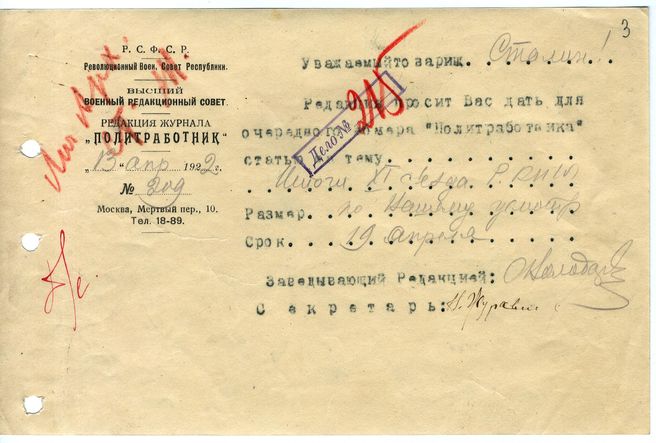 3
Р. С. Ф. С. Р.
Революционный Воен. Совет Республики.
ВЫСШИЙ
ВОЕННЫЙ РЕДАКЦИОННЫЙ СОВЕТ.
РЕДАКЦИЯ ЖУРНАЛА
„ПОЛИТРАБОТНИК“
„13“ апр 1922 г.
№ 309
Москва, Мертвый пер., 10.
Тел. 18-89.
Уважаемыйто варищ. Сталин!
Редакция просит Вас дать для
очередного номера "Политработника"
статью тему
Итоги XI съезда Р.К.П.
Размер. по Вашему усмотр
Срок. 19 апреля
Заведывающий Редакцией:
Секретарь: Н. Журавл
Дело №
215
Арх.